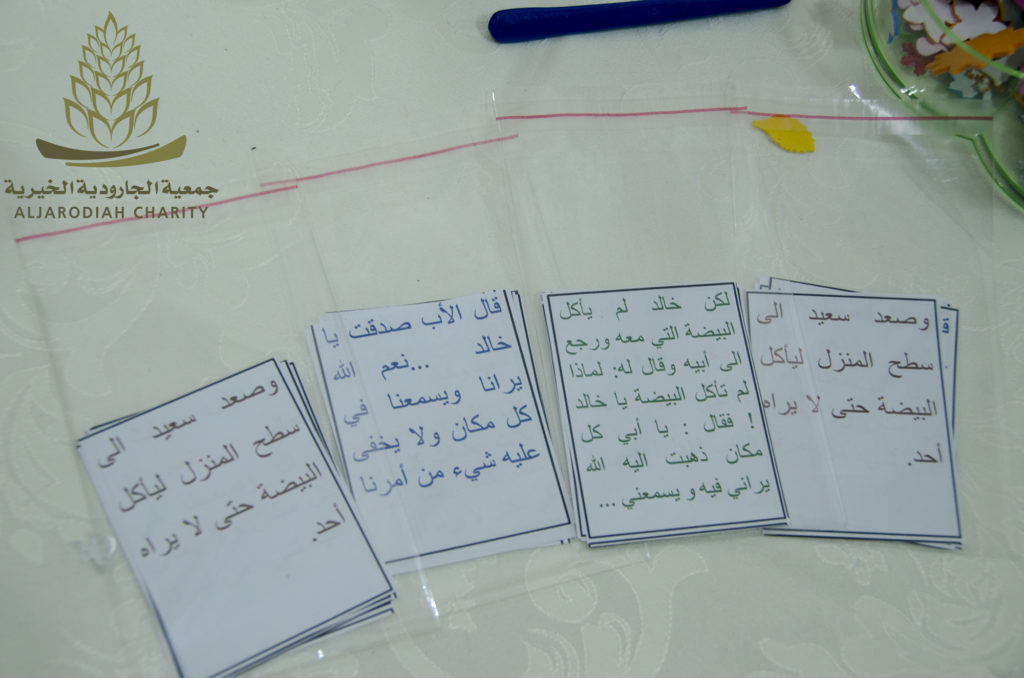 جمعية الجارودية الخيرية
ALJARODIAH CHARITY
وصعد سعيد الى
سطح المنزل ليأكل
البيضة حتى لا يراه
أحد.
لكن خالد لم يأكل
البيضة التي معه ورجع
الى أبيه وقال له: لماذا
لم تأكل البيضة يا خالد
! فقال : يا أبي كل
مكان ذهبت اليه الله
يراني فيه و يسمعني ...
قال الأب صدقت يا
خالد ...نعم الله
يرانا ويسمعنا في
كل مكان ولا يخفى
عليه شيء من أمرنا
وصعد سعيد الى
سطح المنزل ليأكل
البيضة حتى لا يراه
أحد.